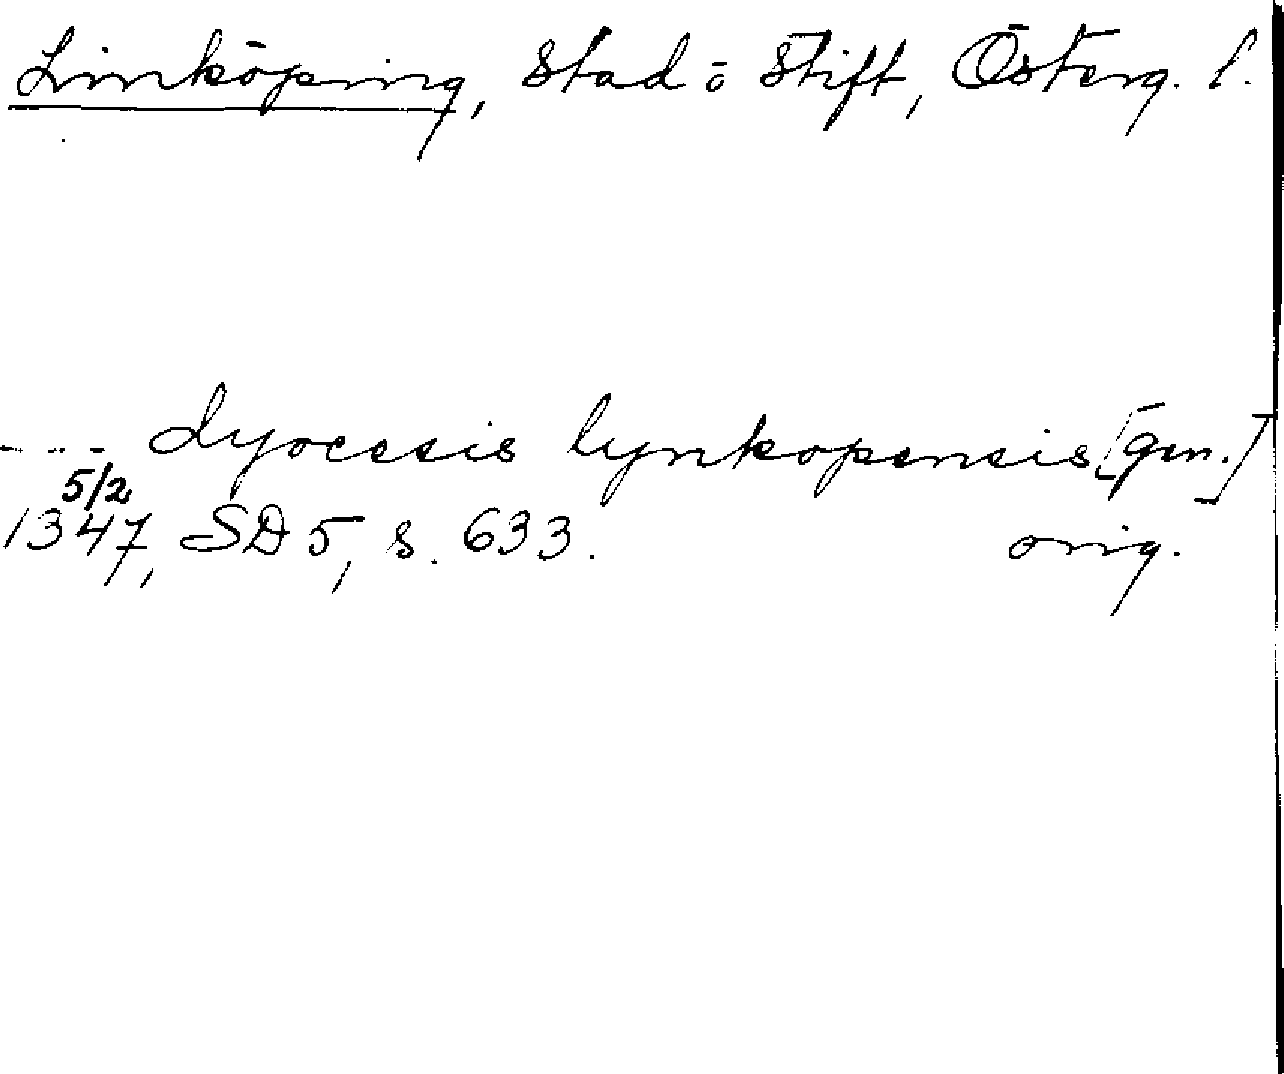 Linköping, stad o stift, Österg. l.
.... dyocesis lynkopensis [gen.]
5/2
1347, SD 5, s. 633. orig.